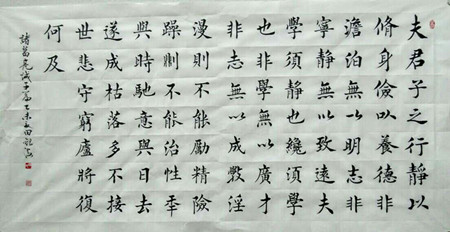 夫君子之行靜以
脩身儉以養德非
澹泊無以明志非
寧靜無以致遠夫
學須靜也纔須學
也非學無以廣才
非志無以成數淫
漫則不能勵精險
躁則不能治性年
與時馳意與日去
遂成枯落多不接
世悲守窮廬將復
何及
諸葛亮誡子書乙未